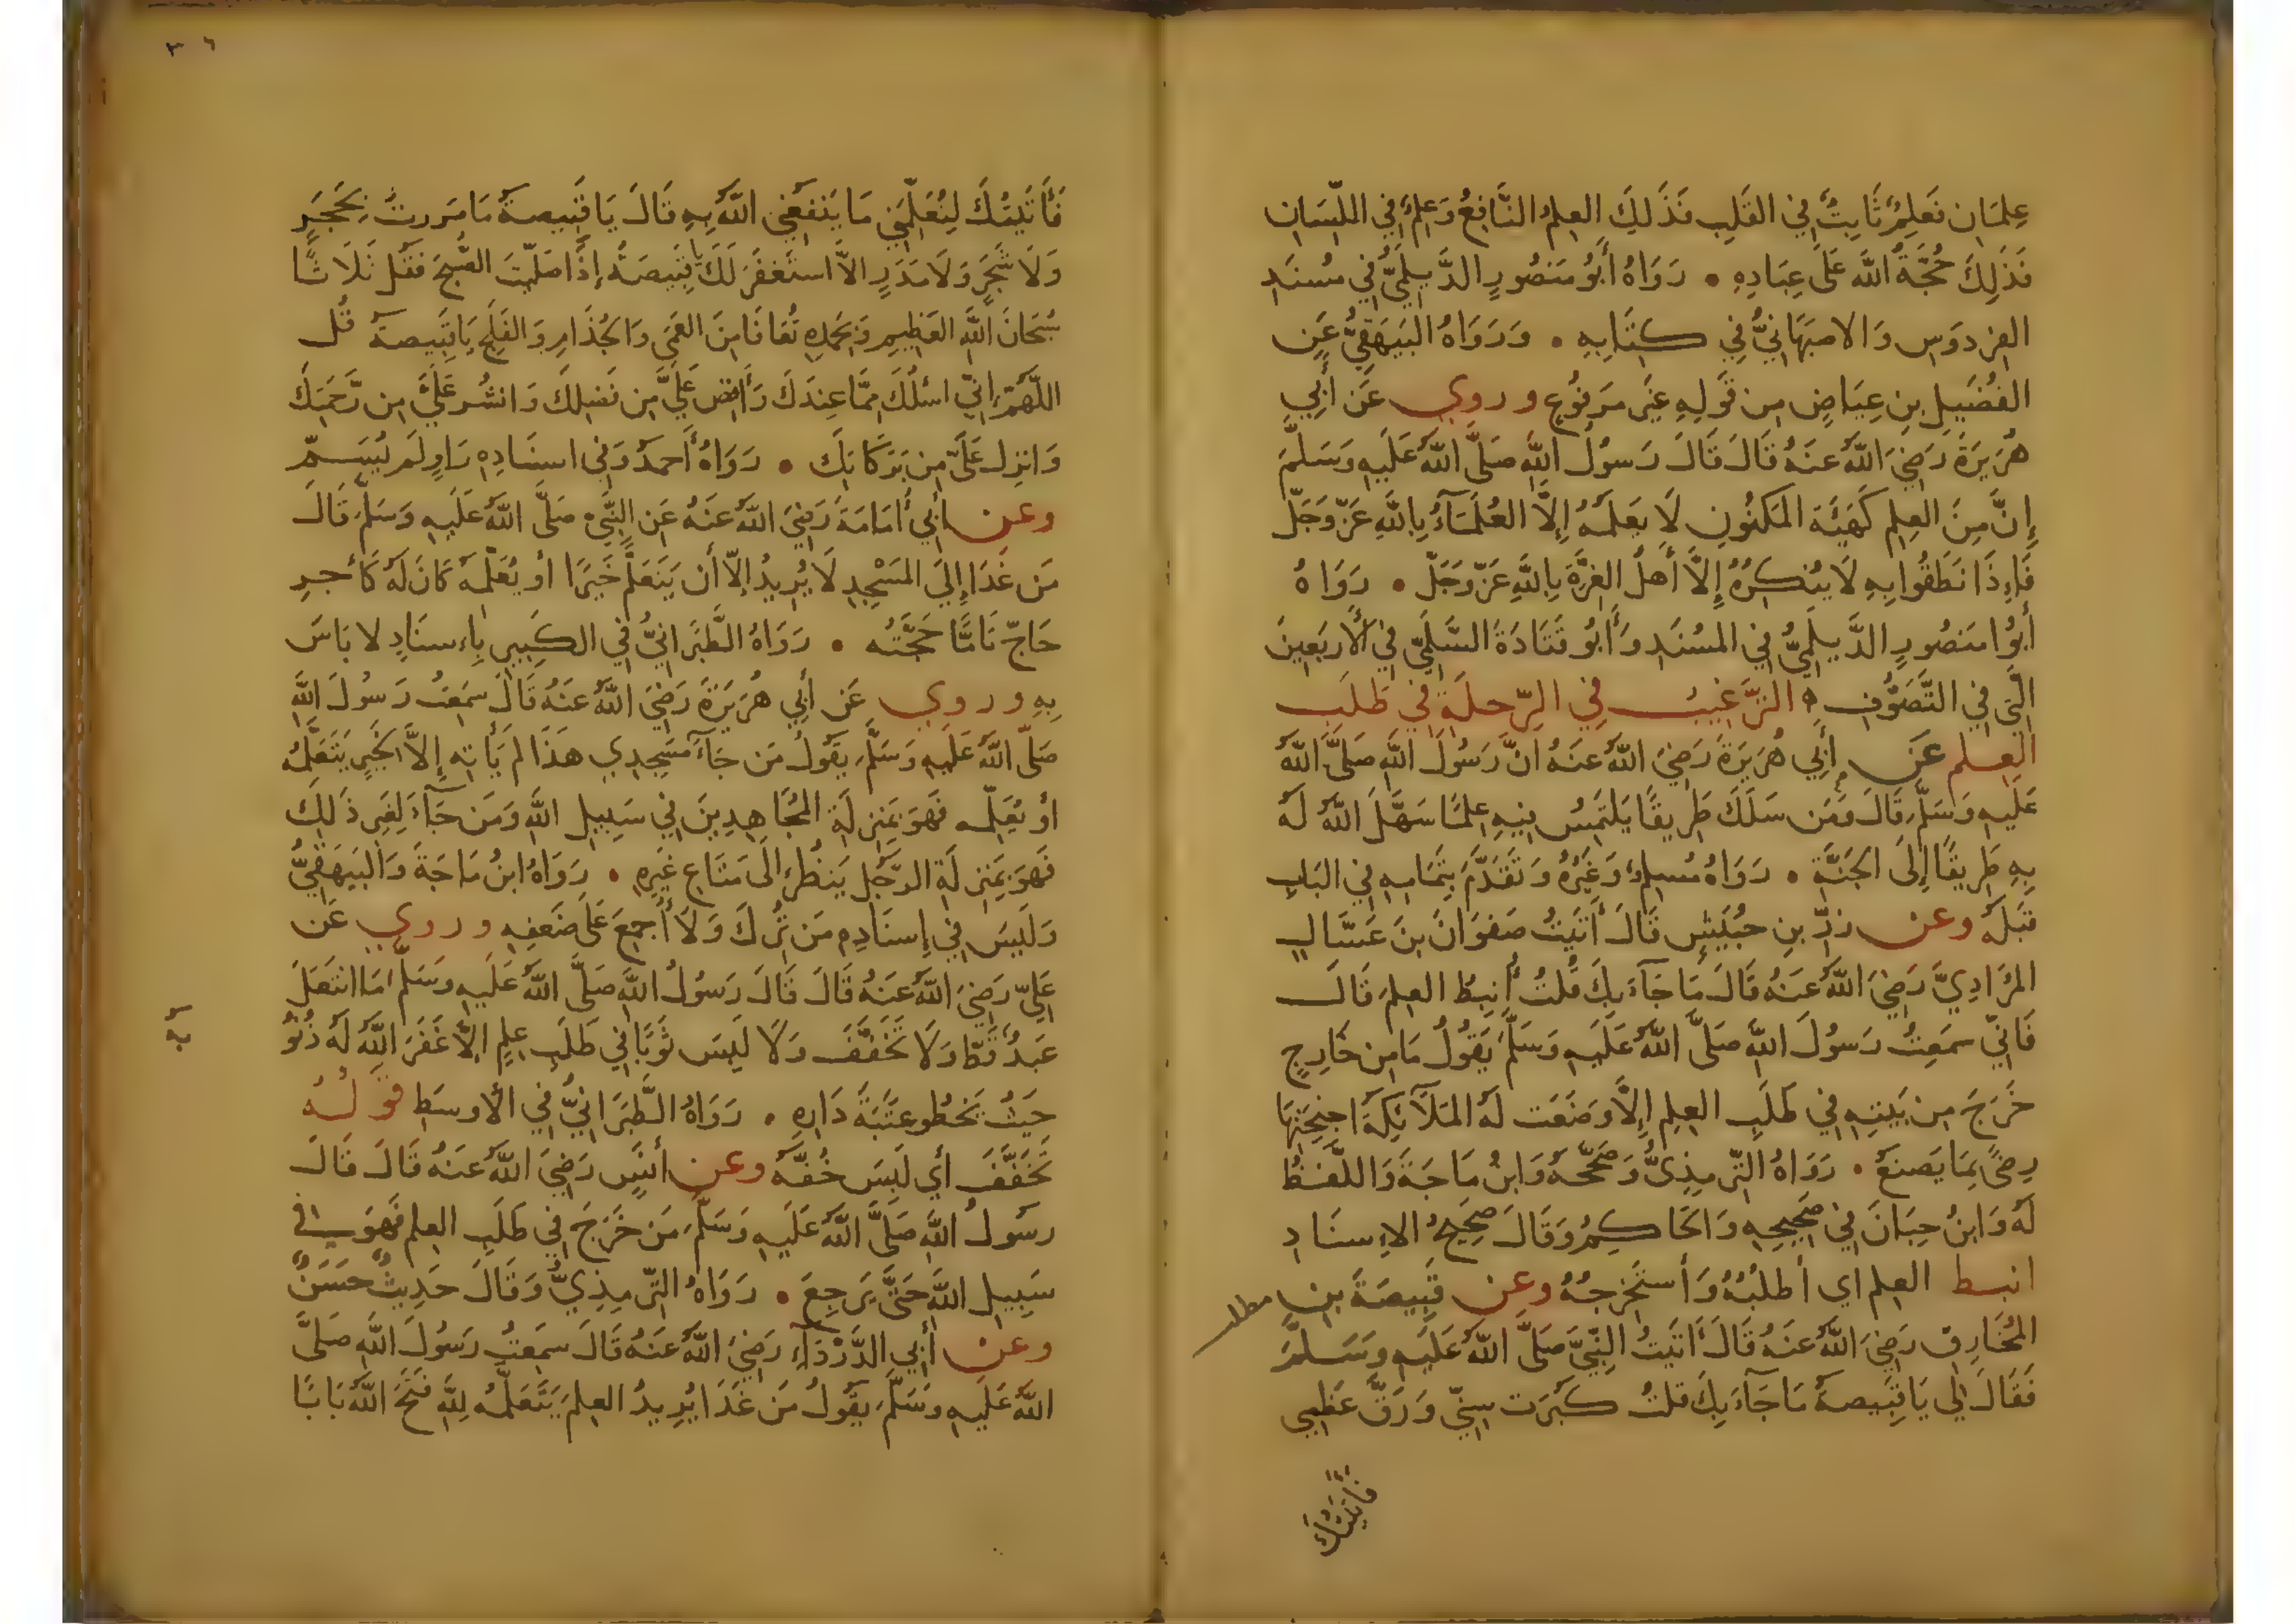 عِلمَانِ فَعِلمٌ ثَابِتٌ فِي القَلبِ فَذَلِكَ العِلمُ النَّافِعُ وَعِلمٌ فِي اللِّسَانِ
فَذَلِكَ حُجَّةُ اللَّهِ عَلَى عِبَادِهِ • رَوَاهُ أَبُو مَنصُورٍ الدَّيلَمِيُّ فِي مُسنَدِ
الفِردَوسِ وَالاصبَهَانِيُّ فِي كِتَابِهِ • وَرَوَاهُ البَيهَقِيُّ عَنِ
الفُضَيلِ بنِ عِيَاضٍ مِن قَولِهِ غَيرَ مَرفُوعٍ وروي عَن أَبِي
هُرَيرَةَ رَضِيَ اللَّهُ عَنهُ قَالَ قَالَ رَسُولُ اللَّهِ صَلَّى اللَّهُ عَلَيهِ وَسَلَّمَ
إِنَّ مِنَ العِلمِ كَهَيئَةِ المَكنُونِ لَا يَعلَمُهُ إِلَّا العُلَمَآءُ بِاللَّهِ عَزَّ وَجَلَّ
فَإِذَا نَطَقُوا بِهِ لَا يُنكِرُهُ إِلَّا أَهلُ الغِرَّةِ بِاللَّهِ عَزَّ وَجَلَّ • رَوَاهُ
أَبُوا مَنصُورٍ الدَّيلَمِيُّ فِي المُسنَدِ وَأَبُو قَتَادَةَ السَّلَمِيّ فِي الأَربَعِينَ
الَّتِي فِي التَّصَوُّفِ ه التَّرغِيبُ فِي الرِّحلَةِ فِي طَلَبِ
العِلمِ عَن أَبِي هُرَيرَةَ رَضِيَ اللَّهُ عَنهُ انَّ رَسُولَ اللَّهِ صَلَّى اللَّهُ
عَلَيهِ وَسَلَّمَ قَالَ وَمَن سَلَكَ طَرِيقًا يَلتَمِسُ فِيهِ عِلمًا سَهَّلَ اللَّهُ لَهُ
بِهِ طَرِيقًا إِلَى الجَنَّةِ • رَوَاهُ مُسلِمٌ وَغَيرُهُ وَتَقَدَّمَ بِتَمَامِهِ فِي البَابِ
قَبلَهُ وعن زِرِّ بنِ حُبَيشٍ قَالَ أَتَيتُ صَفوَانَ بنَ عَسَّالٍ
المُرَادِيَّ رَضِيَ اللَّهُ عَنهُ قَالَ مَا جَآءَ بِكَ قُلتُ أُنبِطُ العِلمَ قَالَ
فَانِّي سَمِعتُ رَسُولَ اللَّهِ صَلَّى اللَّهُ عَلَيهِ وَسَلَّمَ يَقُولُ مَا مِن خَارِجٍ
خَرَجَ مِن بَيتِهِ فِي طَلَبِ العِلمِ إِلَّا وَضَعَت لَهُ المَلَآئِكَةُ اجنِحَتَهَا
رِضًى بِمَا يَصنَعُ • رَوَاهُ التِّرمِذِيُّ وَصَحَّحَهُ وَابنُ مَاجَةَ وَاللَّفظُ
لَهُ وَابنُ حِبَانَ فِي صَحِيحِهِ وَالحَاكِمُ وَقَالَ صَحِيحُ الاِسنَادِ
انبط العِلم اي أَطلُبُهُ وَأَستَخرِجُهُ وعن قَبِيصَةَ بنِ
مطلب
المُخَارِقِ رَضِيَ اللَّهُ عَنهُ قَالَ أَتَيتُ النَّبِيَّ صَلَّى اللَّهُ عَلَيهِ وَسَلَّمَ
فَقَالَ لِي يَا قَبِيصَةُ مَا جَآءَ بِكَ قُلتُ كَبُرَت سِنِّي وَرَقَّ عَظمِي
فَأَتَيتُكَ
٣٦
فَأَتَيتُكَ لِتُعَلِّمَنِي مَا يَنفَعُنِي اللَّهُ بِهِ قَالَ يَا قَبِيصَةُ مَا مَرَرتَ بِحَجَرٍ
وَلَا شَجَرٍ وَلَا مَدَرٍ الاَّ استَغفَرَ لَكَ يَا قَبِيصَةُ إِذَا صَلَّيتَ الصُّبحَ فَقُل ثَلَاثًا
سُبحَانَ اللَّهِ العَظِيمِ وَبِحَمدِهِ تُعَافَا مِنَ العَمَى وَالجُذَامِ وَالفَلجِ يَا قَبِيصَةُ قُل
اللَّهُمَّ انِّي اسئَلُكَ مِمَّا عِندَكَ وَأَفِض عَلَيَّ مِن فَضلِكَ وَانشُر عَلَيَّ مِن رَّحمَتِكَ
وَانزِل عَلَيَّ مِن بَرَكَاتِكَ • رَوَاهُ أَحمَدُ وَفِي اسنَادِهِ رَاوٍ لَم يُسَمَّ
وعن أَبِي أُمَامَةَ رَضِيَ اللَّهُ عَنهُ عَنِ النَّبِيِّ صَلَّى اللَّهُ عَلَيهِ وَسَلَّمَ قَالَ
مَن غَدَا إِلَى المَسْجِدِ لَا يُرِيدُ إِلَّا أَن يَتَعَلَّمَ خَيرًا أَو يُعَلِّمَهُ كَانَ لَهُ كَأَجرِ
حَاجٍّ تَامًّا حَجَّتُه • رَوَاهُ الطَّبَرَانِيُّ فِي الكَبِيرِ بِاِسنَادٍ لا بَاسَ
بِهِ وروي عَن أَبِي هُرَيرَةَ رَضِيَ اللَّهُ عَنهُ قَالَ سَمِعتُ رَسُولَ اللَّهِ
صَلَّى اللَّهُ عَلَيهِ وَسَلَّمَ يَقُولُ مَن جَآءَ مَسجِدِي هَذَا لَم يَأتِهِ إِلاَّ لِخَيرٍ يَتَعَلَّمُهُ
أَو يُعَلِّمه فَهوَ بِمَنزِلَةِ المُجَاهِدِينَ فِي سَبِيلِ اللَّهِ وَمَن جَآءَ لِغَيرِ ذَلِكَ
فَهوَ بِمَنزِلَةِ الرَّجُلِ يَنظُرُ الَى مَتَاعِ غَيرِهِ • رَوَاهُ ابنُ مَاجَةَ وَالبَيهَقِيُّ
وَلَيسَ فِي إِسنَادِهِ مَن تُرِكَ وَلَا أُجمِعَ عَلَى ضَعفِهِ وروي عَن
عَلِيّ رَضِيَ اللَّهُ عَنهُ قَالَ قَالَ رَسُولُ اللَّهِ صَلَّى اللَّهُ عَلَيهِ وَسَلَّمَ مَا انتَعَلَ
عَبدٌ قَطُّ وَلَا تَخَفَّفَ وَلَا لَبِسَ ثَوبًا فِي طَلَبِ عِلمٍ الاَّ غَفَرَ اللَّهُ لَهُ ذُنُو
بَهُ
حَيثُ يَخطُو عَتَبَةَ دَارِهِ • رَوَاهُ الطَّبَرَانِيُّ فِي الأَوسَطِ قَولُهُ
تَخَفَّفَ أَي لَبِسَ خُفَّهُ وعن أَنَسٍ رَضِيَ اللَّهُ عَنهُ قَالَ قَالَ
رسُولُ اللَّهِ صَلَّى اللَّهُ عَلَيهِ وَسَلَّمَ مَن خَرَجَ فِي طَلَبِ العِلمِ فَهوَ فِي
سَبِيلِ اللَّهِ حَتَّى يَرجِعَ • رَوَاهُ التِّرمِذِيُّ وَقَالَ حَدِيثٌ حَسَنٌ
وعن أَبِي الدَّرْدَآءِ رَضِيَ اللَّهُ عَنهُ قَالَ سَمِعتُ رَسُولَ اللَّهِ صَلَّى
اللَّهُ عَلَيهِ وَسَلَّمَ يَقُولُ مَن غَدَا يُرِيدُ العِلمَ يَتَعَلَّمُهُ لِلَّهِ فَتَحَ اللَّهُ بَابًا